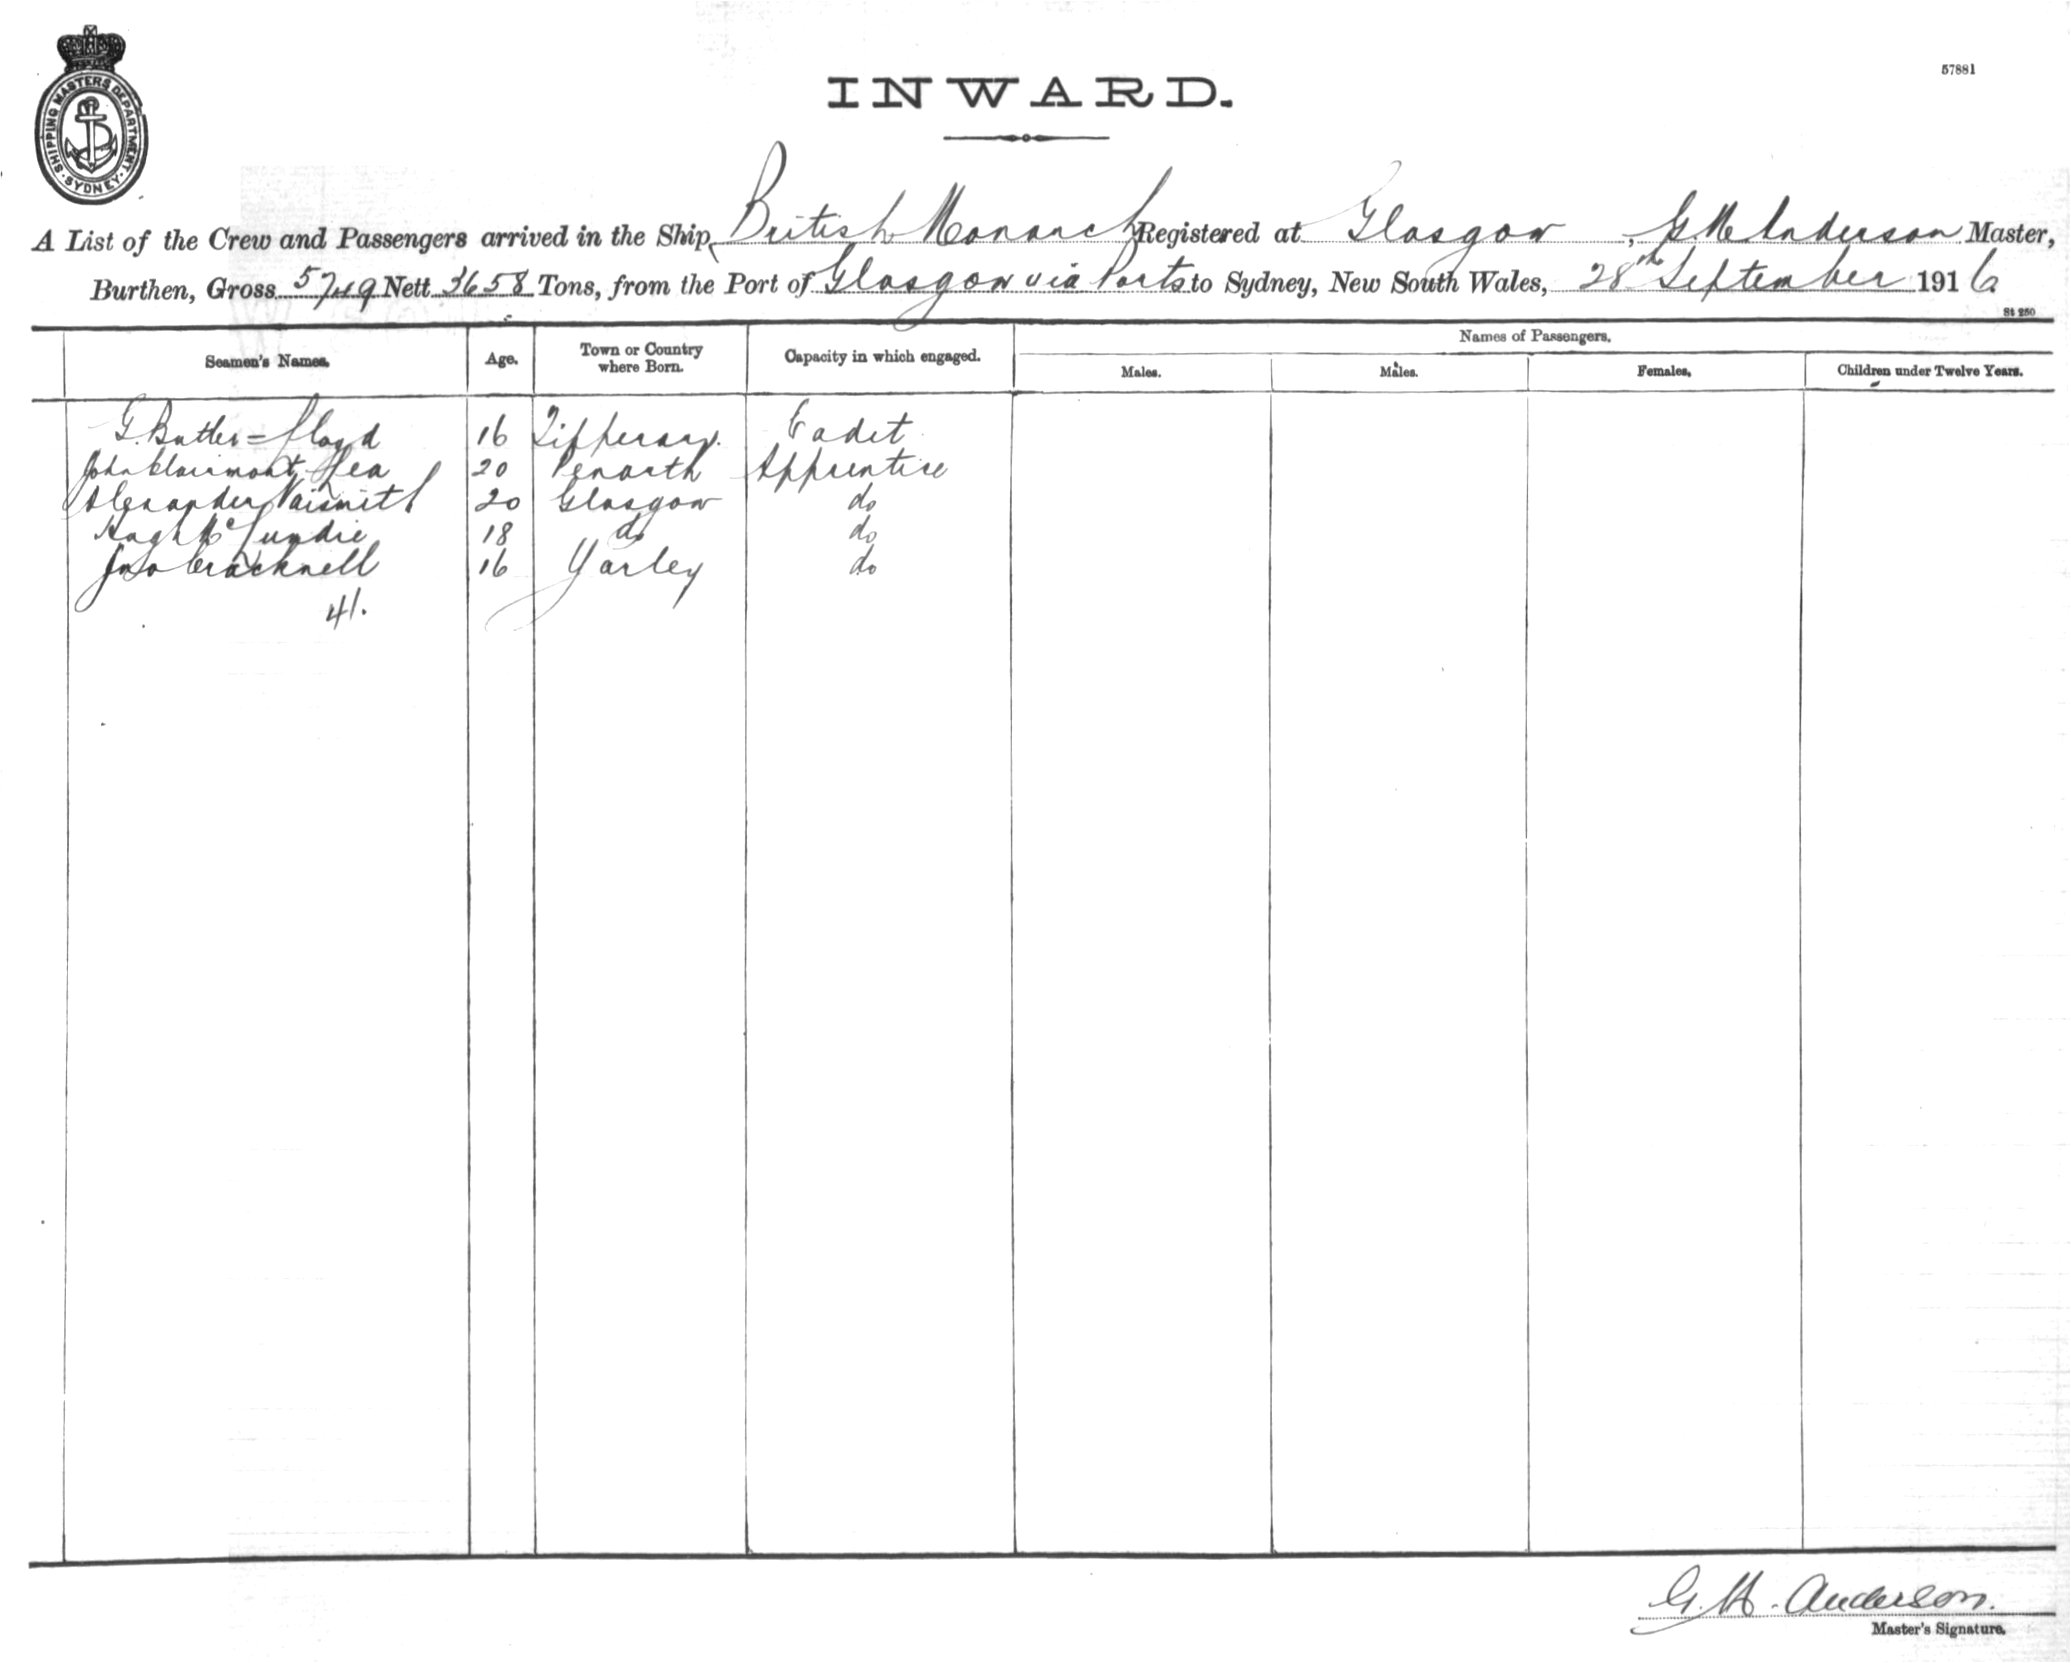 SHIPPING MASTERS DEPARTMENT. SYDNEY.
57881
INWARD.
A List of the Crew and Passengers arrived in the Ship British Monarch Registered at Glasgow, G. M. Anderson Master,
Burthen, Gross 5749 Nett 3658 Tons, from the Port of Glasgow via Ports to Sydney, New South Wales, 28th September 1916
St 250
Seamen's Names. Age. Town or Country where Born. Capacity in which engaged. Names of Passengers.
Males. Males. Females. Children under Twelve Years.
G. Butler = Lloyd 16 Tipperary. Cadet
John Clairmont 20 Penarth Apprentice
Alexander Naismith 20 Glasgow do
Hugh 18 do do
Jno Cracknell 16 Yarley do
41.
Anderson.
Master's Signature.